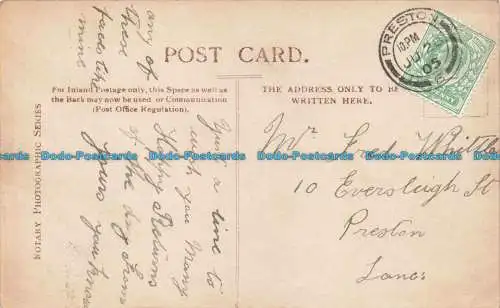 POST CARD.
For Inland Postage only, this Space as well as
the Back may now be used for Communication
(Post Office Regulation).
THE ADDRESS ONLY TO BE
WRITTEN HERE.
NOTARY PHOTOGRAPHIC SERIES
PRESTON
10.PM
JU 2
05
Just a line to
wish you Many
Happy Returns
of the day from
yours you know
any of
these
faces like
mine
Mr Fred
10 Eversleigh St
Preston
Lancs
Dodo-Postcards Dodo-Postcards Dodo-Postcards Dodo-Postcards Dodo-Postcards